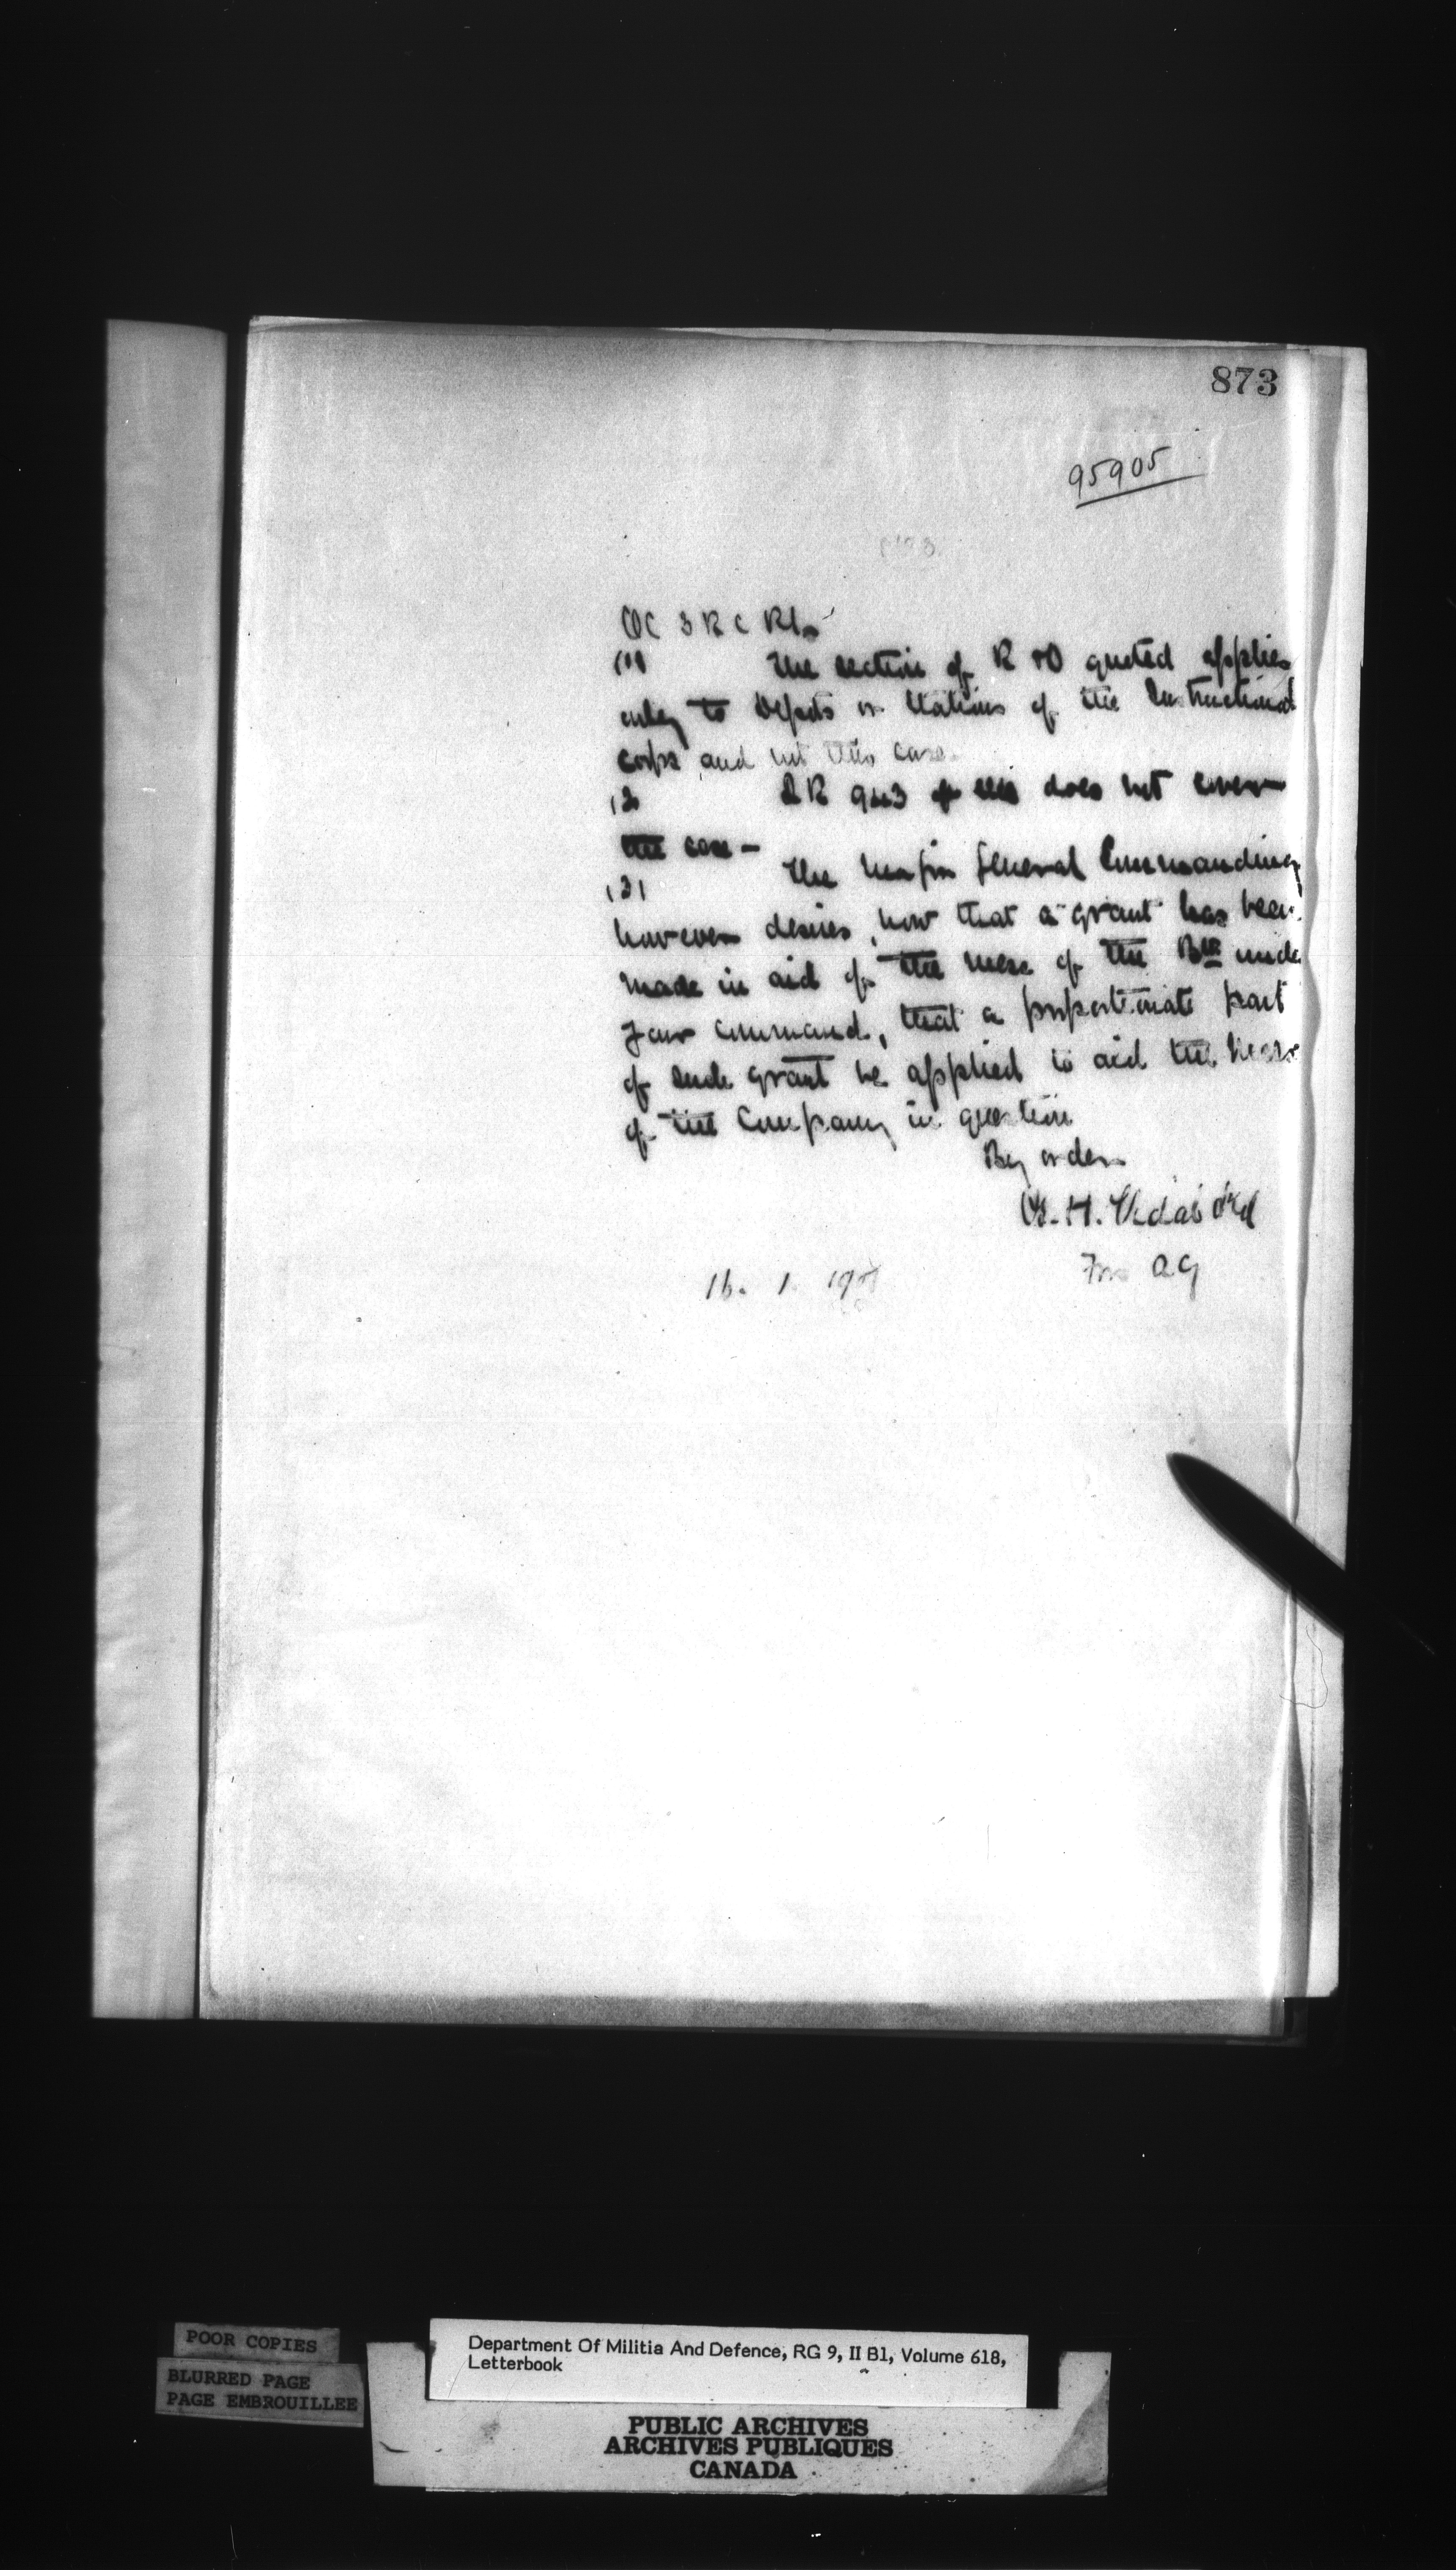 873
95905
OC 3 R C R
(1) The section of R & O quoted applies
only to Depots or Stations of the Instructional
corps and not this case.
(2) Q R 943 does not cover
the case —
(3) The Major General Commanding
however desires, now that a grant has been
made in aid of the mess of the Bn under
your command, that a proportionate part
of such grant be applied to aid the mess
of the Company in question
By order
For AG
16. 1.
POOR COPIES
BLURRED PAGE
PAGE EMBROUILLEE
Department Of Militia And Defence, RG 9, II B1, Volume 618,
Letterbook
PUBLIC ARCHIVES
ARCHIVES PUBLIQUES
CANADA